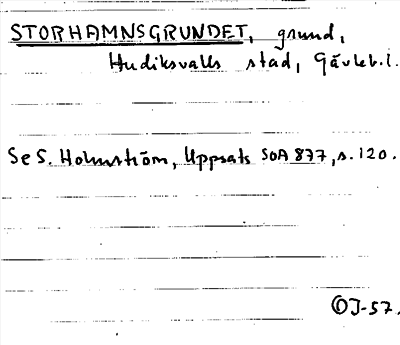 STORHAMNSGRUNDET, grund,
Hudiksvalls stad, Gävleb.l.
Se S. Holmström, Uppsats SOA 877, s. 120.
OJ-57.